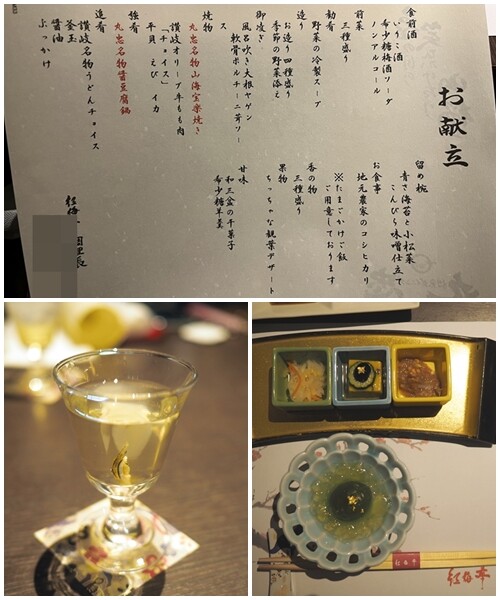 お献立
食前酒
いりこ酒
希少糖梅酒ソーダ
ノンアルコール
前菜
三種盛り
初肴
野菜の冷製スープ
造り
お造り四種盛り
季節の野菜添え
御凌ぎ
風呂吹き大根ヤゲン
軟骨ポルチーニ茸ソー
ス
焼物
丸忠名物山海宝楽焼き
讃岐オリーブ牛もも肉
「チョイス」
平貝 えび イカ
強肴
丸忠名物醤豆腐鍋
追肴
讃岐名物うどんチョイス
釜玉
醤油
ぶっかけ
留め椀
青さ海苔と小松菜
こんぴら味噌仕立て
お食事
地元農家のコシヒカリ
※たまごかけご飯
ご用意しております
香の物
三種盛り
果物
ちっちゃな観葉デザート
甘味
和三盆の干菓子
希少糖羊羹
紅梅亭
紅梅亭